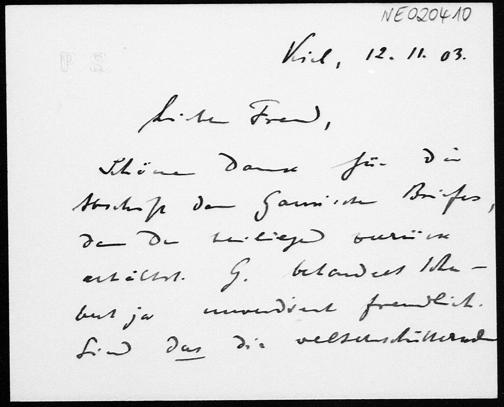 NE020410
Kiel, 12.11.03.
Lieber Freund,
Schönen Dank für die
Abschrift des Briefes,
den Du beiliegend zurück
erhältst. G. behandelt
ja unverdient freundlich.
Sind das die welterschütternden